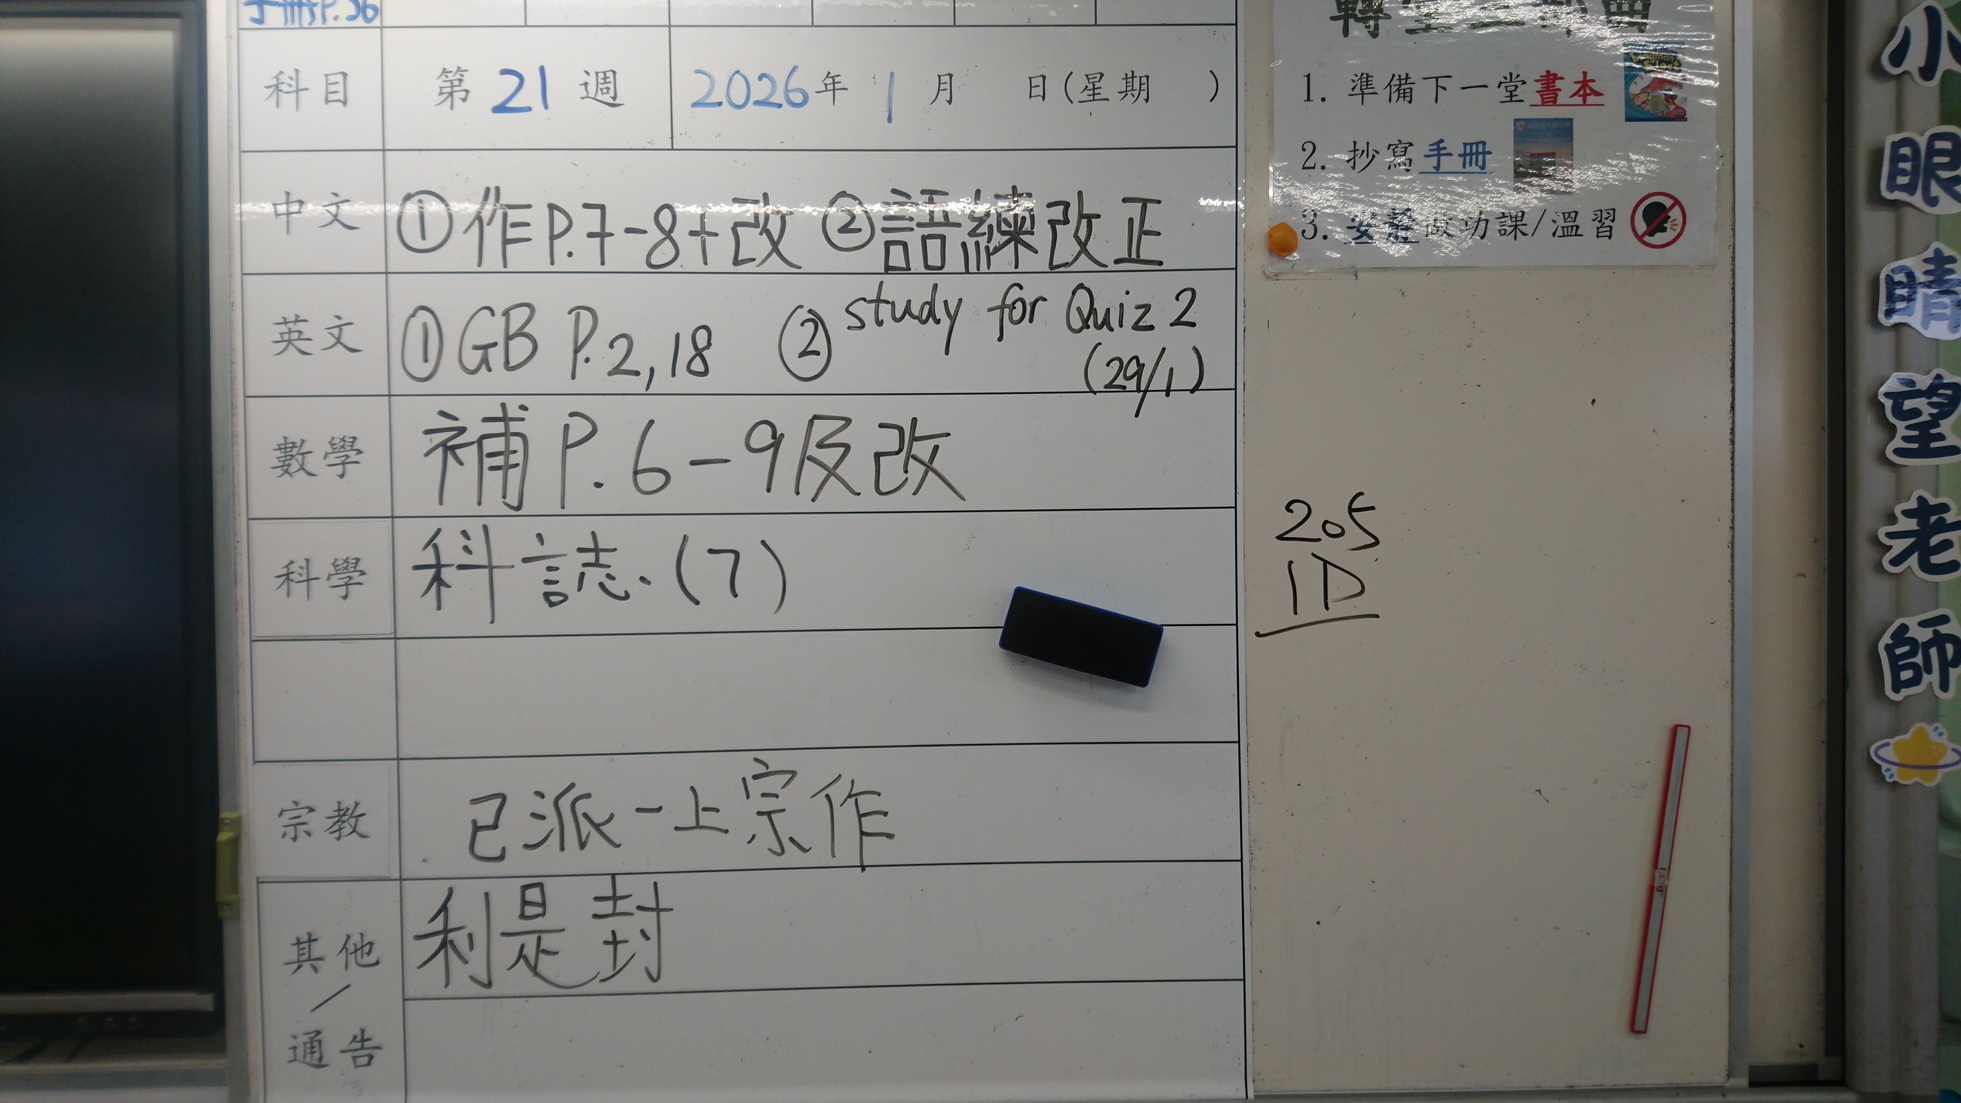 手冊P.36
科目 第 21 週 2026年 1 月 日(星期 )
中文 ①作P.7-8+改 ②語練改正
英文 ①GB P.2,18 ②study for Quiz 2
(29/1)
數學 補P.6-9及改
科學 科誌.(7)
宗教 已派-上宗作
其他/通告 利是封
轉堂三部曲
1. 準備下一堂書本
2. 抄寫手冊
3. 安靜做功課/溫習
205
1D
小眼睛望老師